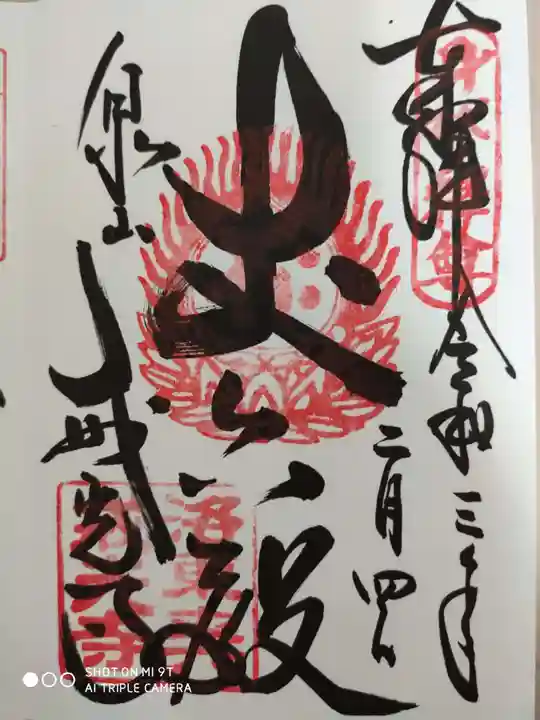 奉拝 令和三年
二月四日
丈六殿
泉山 戒光寺
SHOT ON MI 9T
AI TRIPLE CAMERA